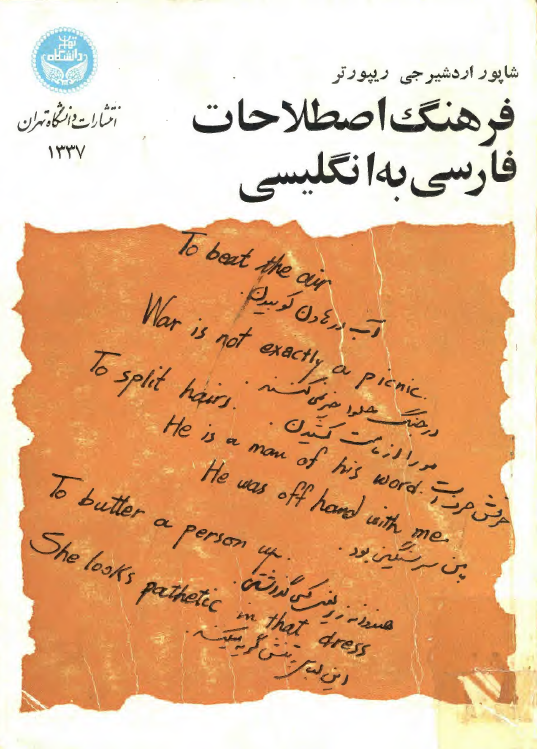 شاپور اردشیرجی ریپورتر
فرهنگ اصطلاحات
فارسی به انگلیسی
دانشگاه
انتشارات دانشگاه تهران
۱۳۳۷
To beat the air
آب در هاون کوبیدن.
War is not exactly a picnic.
در جنگ حلوا خیر نمی‌کنند.
To split hairs.
مو را از ماست کشیدن.
He is a man of his word.
حرفش حرف است
He was off hand with me.
بمن سرسنگین بود.
To butter a person up.
هندوانه زیر بغل کسی گذاشتن.
She looks pathetic in that dress
این لباس بتنش گریه میکند.